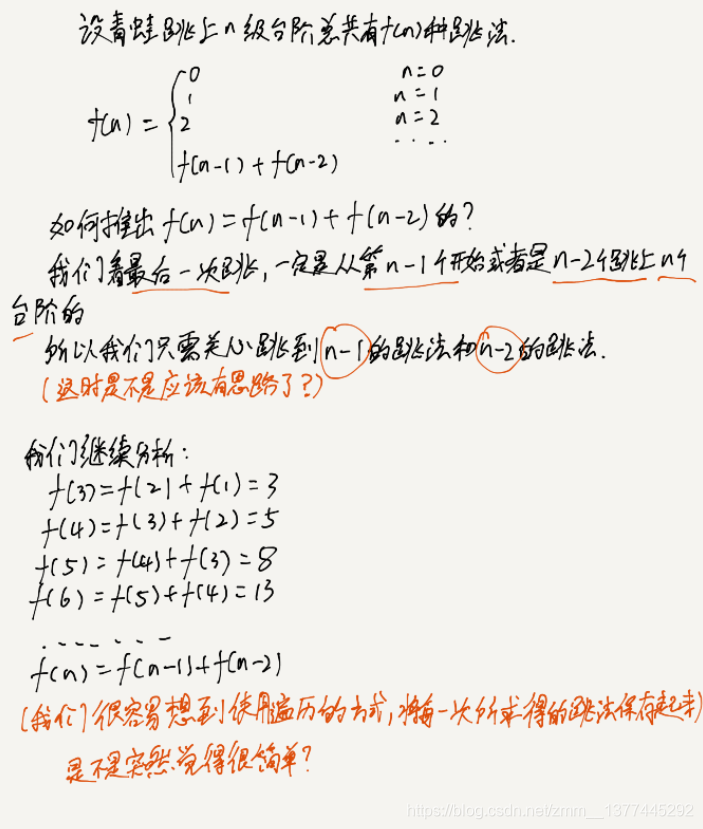 设青蛙跳上n级台阶总共有f(n)种跳法.
0 n=0
1 n=1
f(n)= { 2 n=2
f(n-1)+f(n-2) ....
如何推出f(n)=f(n-1)+f(n-2)的?
我们看最后一次跳,一定是从第n-1个开始或者是n-2个跳上n个
台阶的
所以我们只需关心跳到n-1的跳法和n-2的跳法.
(这时是不是应该有思路了?)
我们继续分析:
f(3)=f(2)+f(1)=3
f(4)=f(3)+f(2)=5
f(5)=f(4)+f(3)=8
f(6)=f(5)+f(4)=13
.......
f(n)=f(n-1)+f(n-2)
(我们很容易想到使用遍历的方式,将每一次所求得的跳法保存起来)
是不是突然觉得很简单?
https://blog.csdn.net/zmm__1377445292